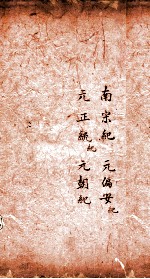 南宋紀 元偏安紀
元正統紀 元朝紀